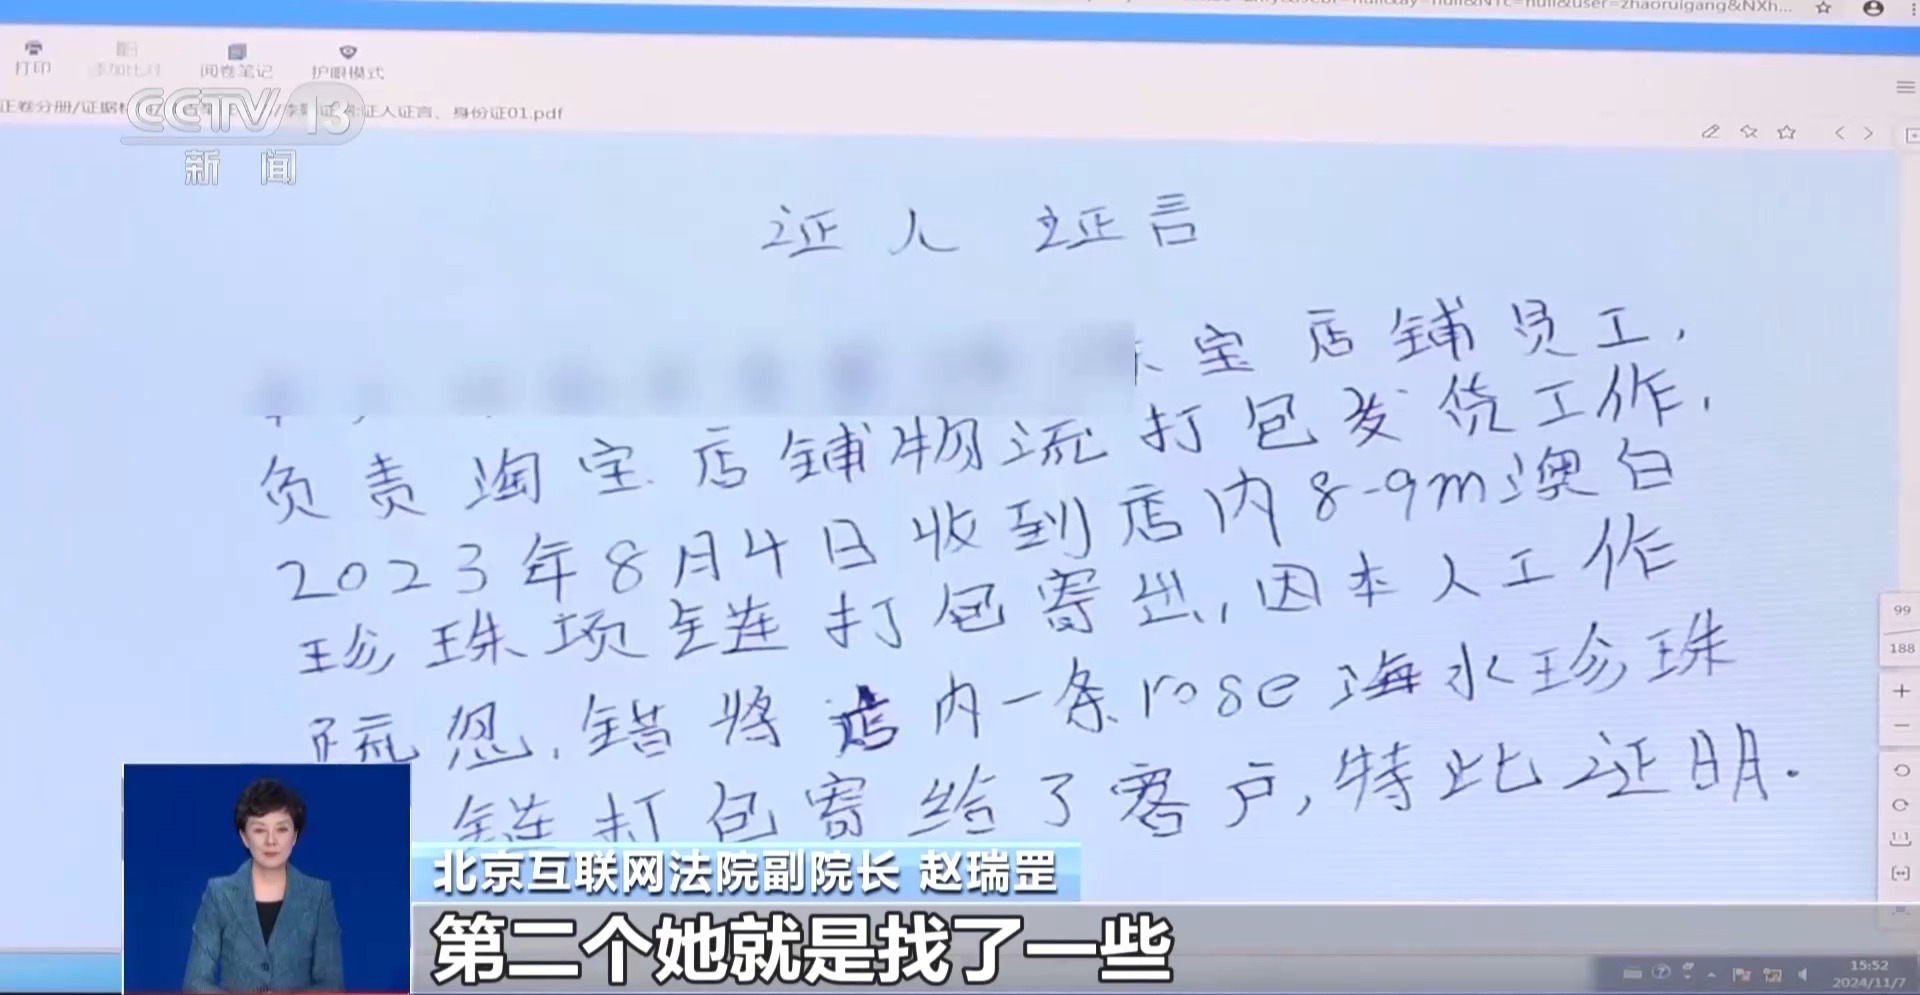 null&user=zhaoruigang&NXh...
打印 添加比对 阅卷笔记 护眼模式
正卷分册/证据
证人证言、身份证01.pdf
CCTV 13
新闻
证人证言
宝店铺员工,
负责淘宝店铺物流打包发货工作,
2023年8月4日收到店内8-9m澳白
珍珠项链打包寄出,因本人工作
疏忽,错将店内一条rose海水珍珠
链打包寄给了客户,特此证明.
99
188
1:1
北京互联网法院副院长 赵瑞罡
第二个她就是找了一些
15:52
2024/11/7